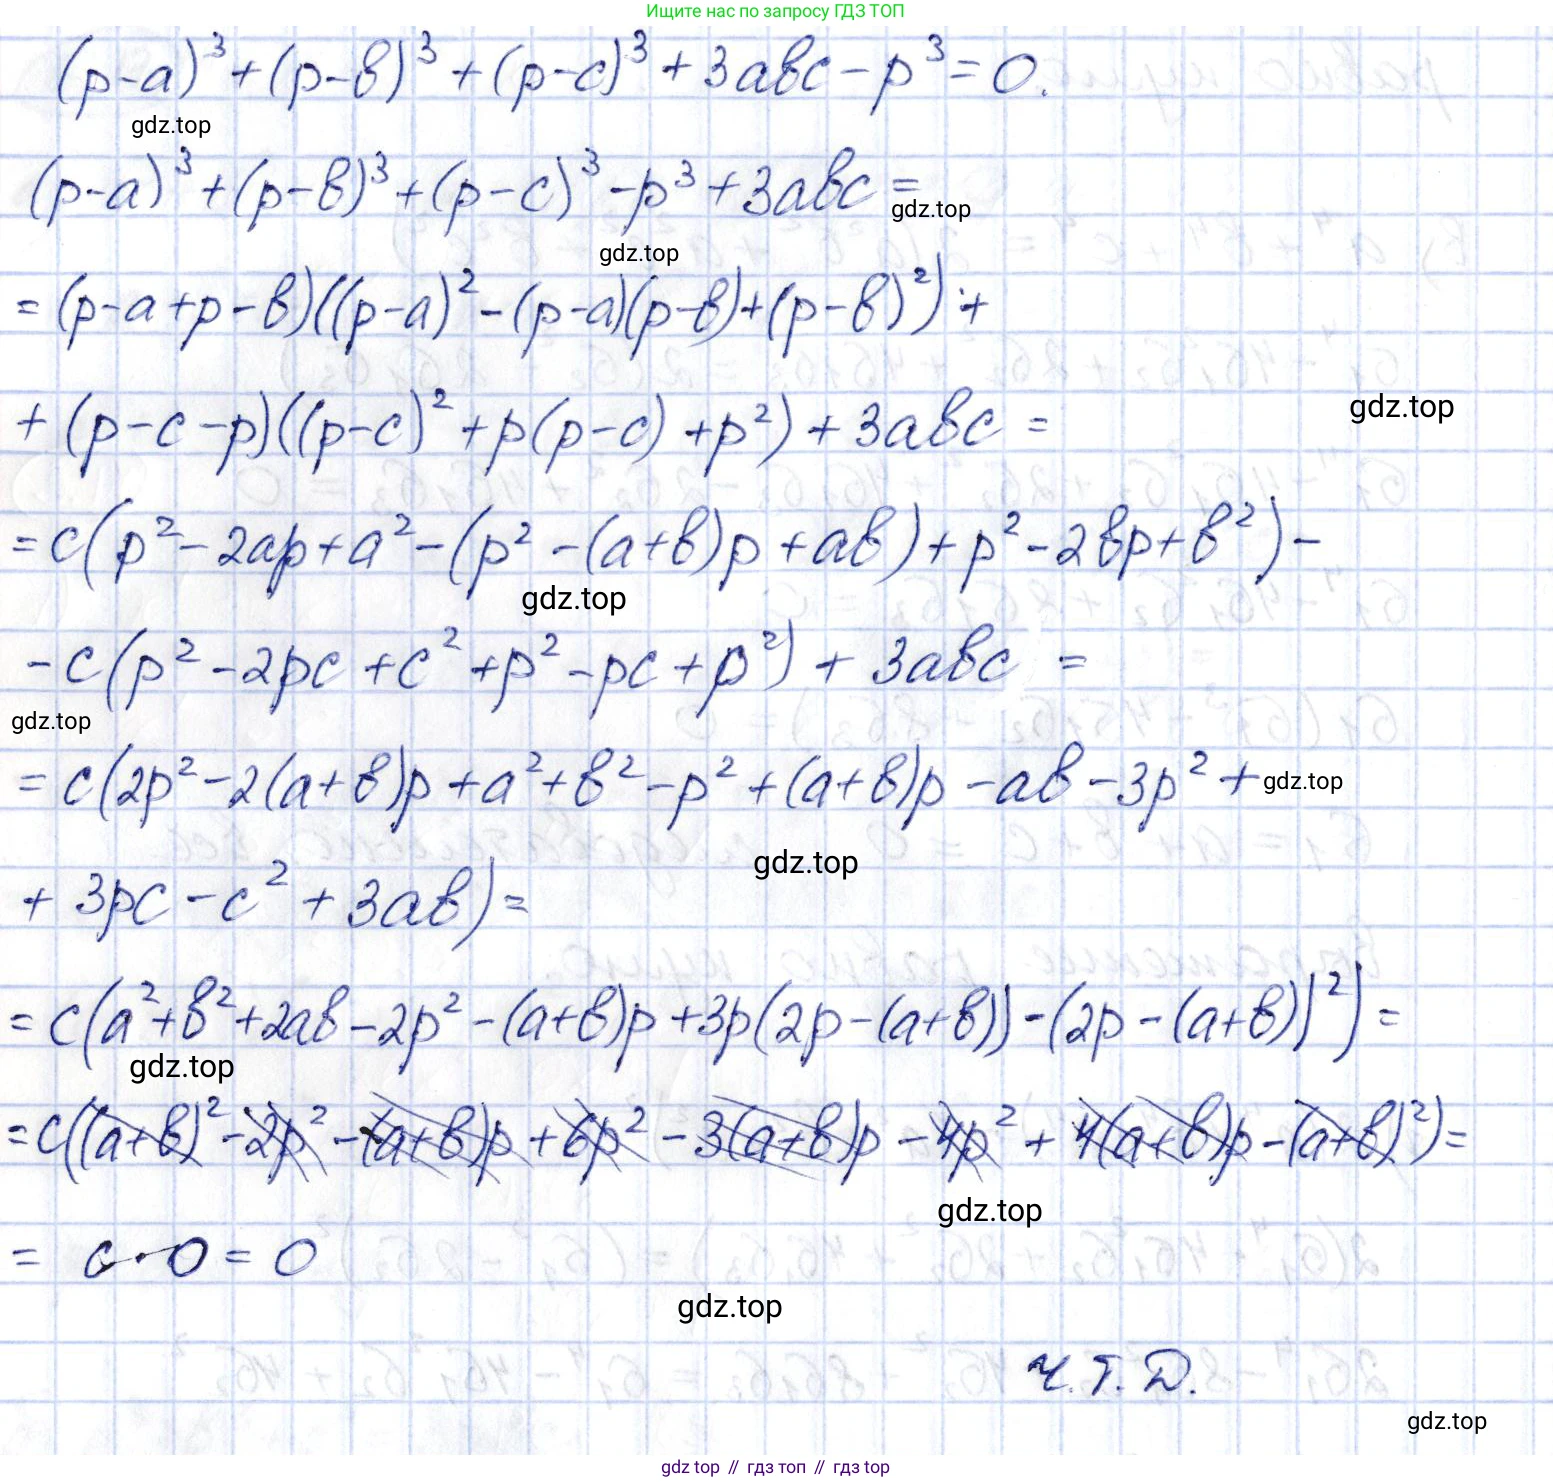 Ищите нас по запросу ГДЗ ТОП
(p-a)³+(p-в)³+(p-c)³+3aвc-p³=0.
gdz.top
(p-a)³+(p-в)³+(p-c)³-p³+3aвc=
gdz.top
gdz.top
=(p-a+p-в)((p-a)²-(p-a)(p-в)+(p-в)²)+
+(p-c-p)((p-c)²+p(p-c)+p²)+3aвc=
gdz.top
=c(p²-2ap+a²-(p²-(a+в)p+aв)+p²-2вp+в²)-
gdz.top
-c(p²-2pc+c²+p²-pc+p²)+3aвc=
gdz.top
=c(2p²-2(a+в)p+a²+в²-p²+(a+в)p-aв-3p²+
gdz.top
gdz.top
+3pc-c²+3aв)=
=c(a²+в²+2aв-2p²-(a+в)p+3p(2p-(a+в))-(2p-(a+в))²)=
gdz.top
=c((a+в)²-2p²-(a+в)p+6p²-3(a+в)p-4p²+4(a+в)p-(a+в)²)=
gdz.top
=c·0=0
gdz.top
Ч.Т.Д.
gdz.top
gdz top // гдз топ // гдз top